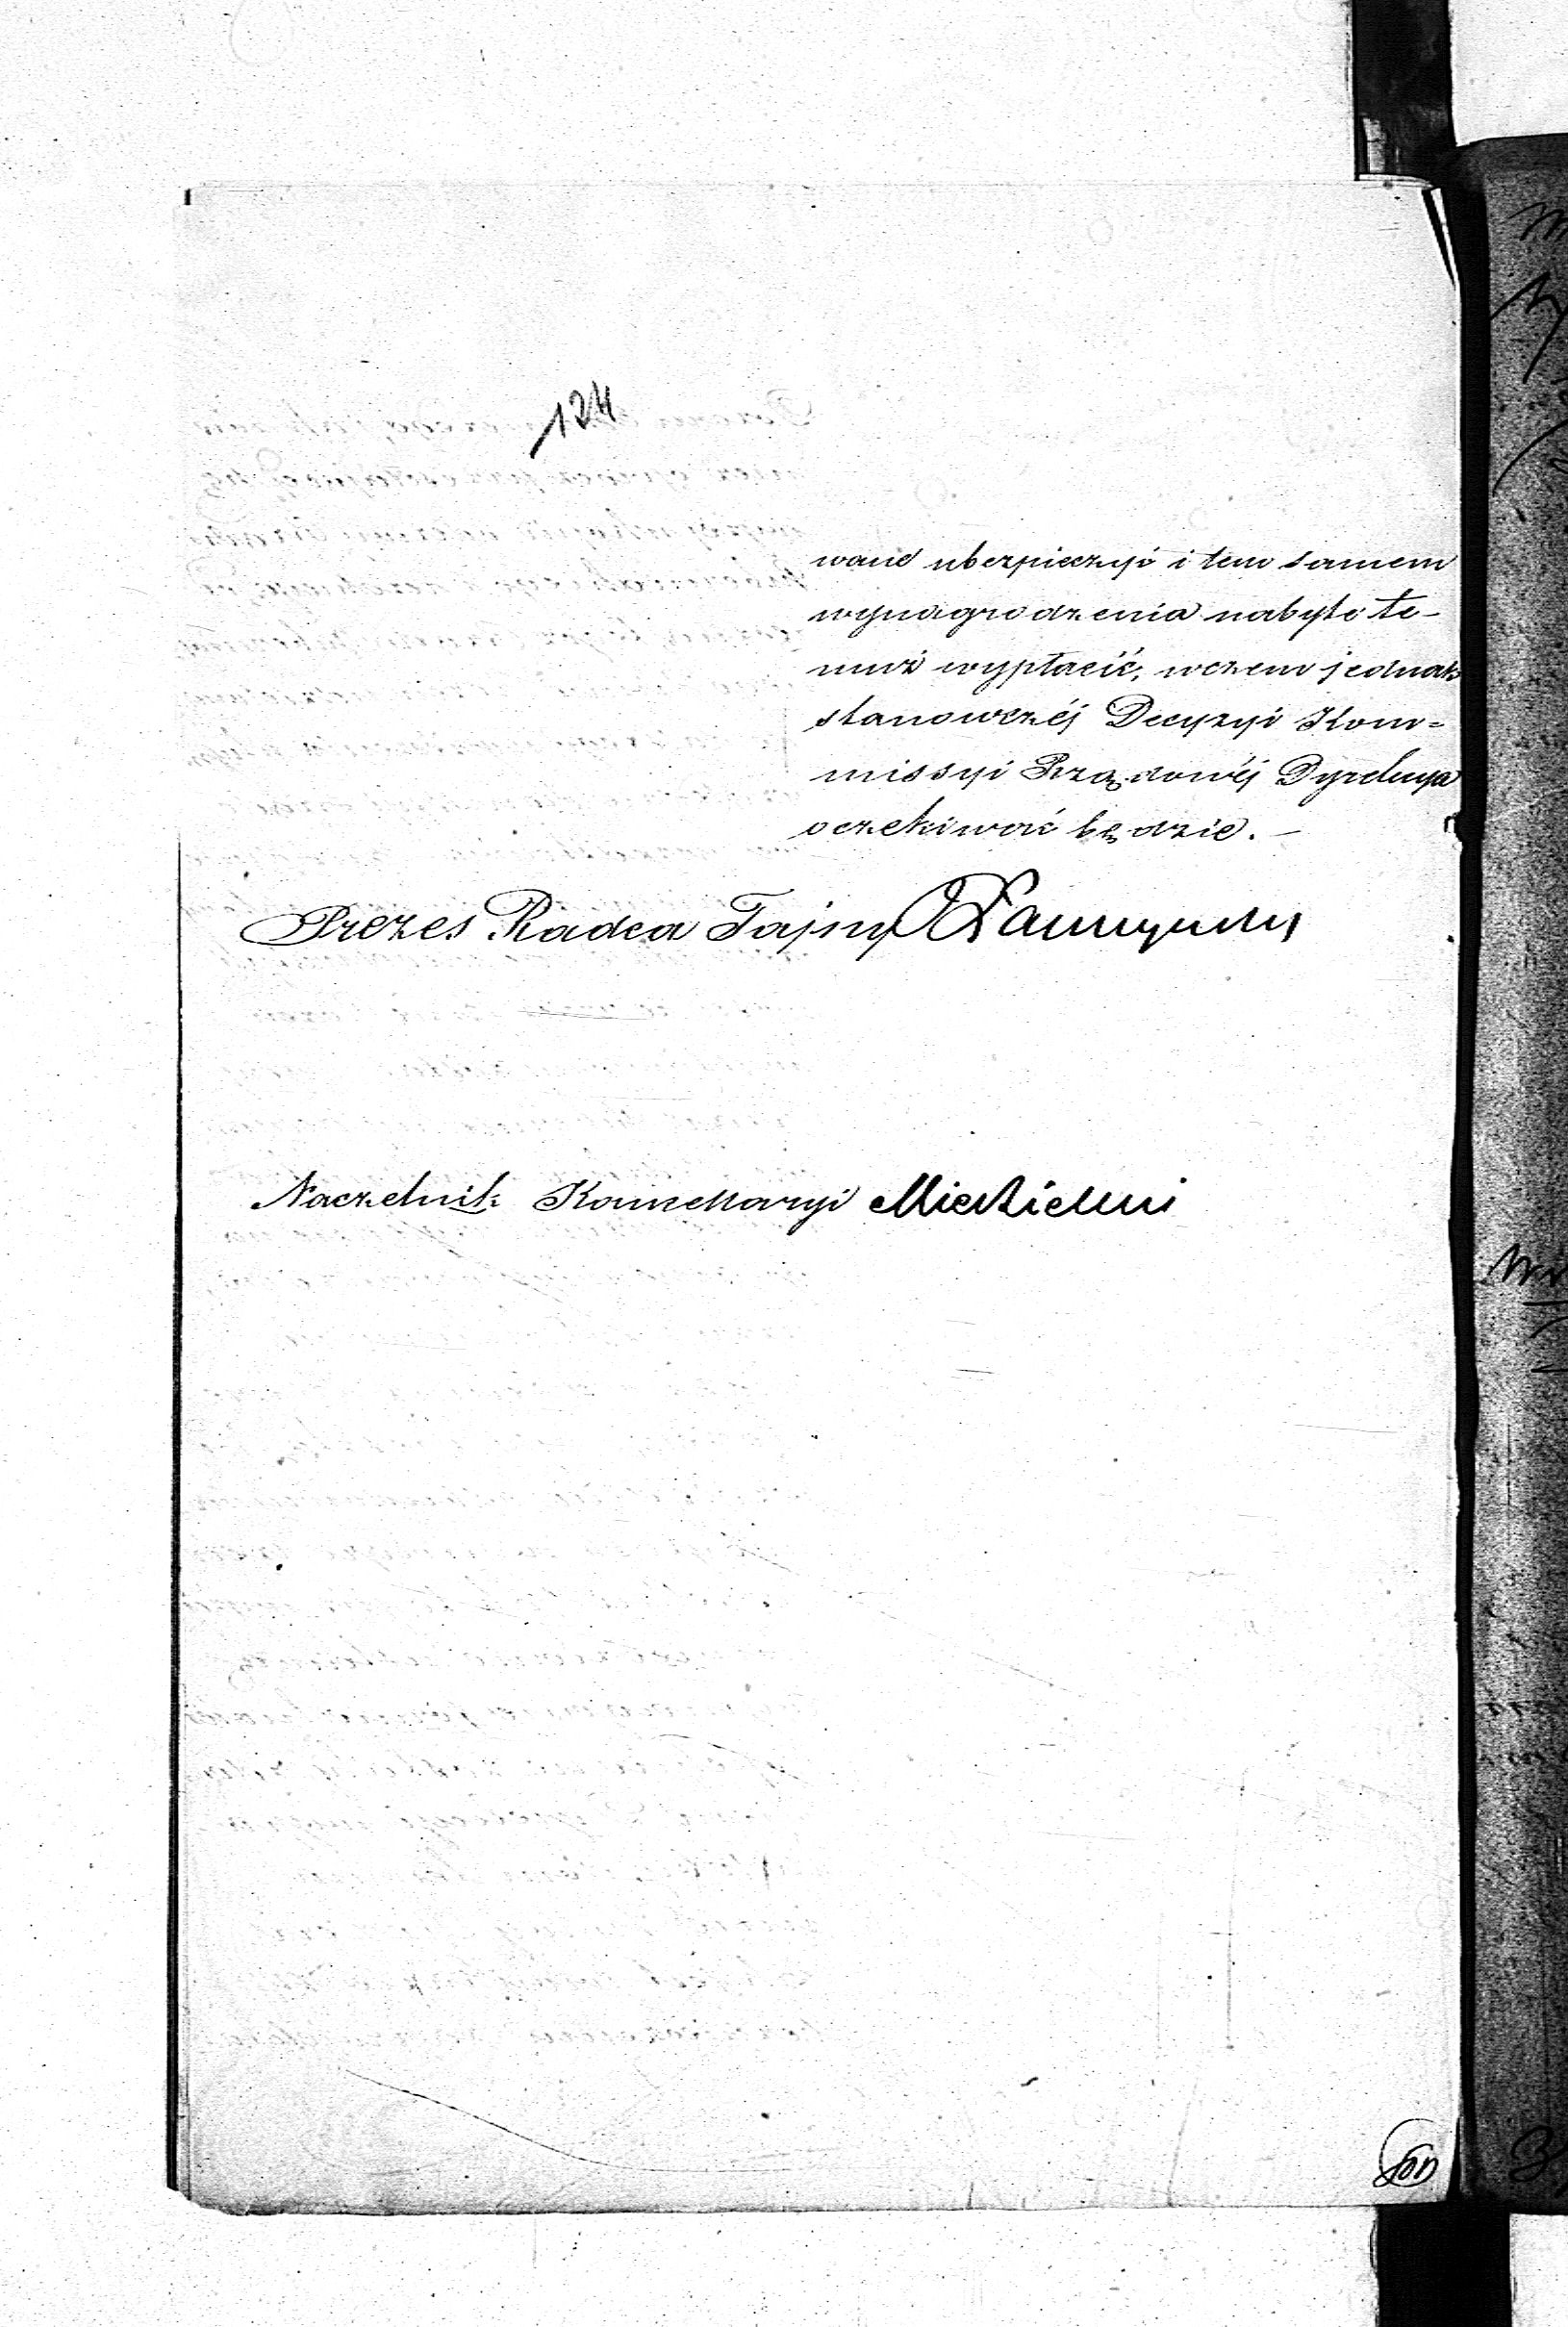 124
wane ubezpieczyć i tem samem
wynagrodzenia nabyto te-
muż wypłacić, wczem jednak
stanowczéj Decyzyi Kom=
missyi Rządowéj Dyrekcya
oczekiwać będzie. —
Prezes Radca Tajny
Naczelnik Kancellaryi